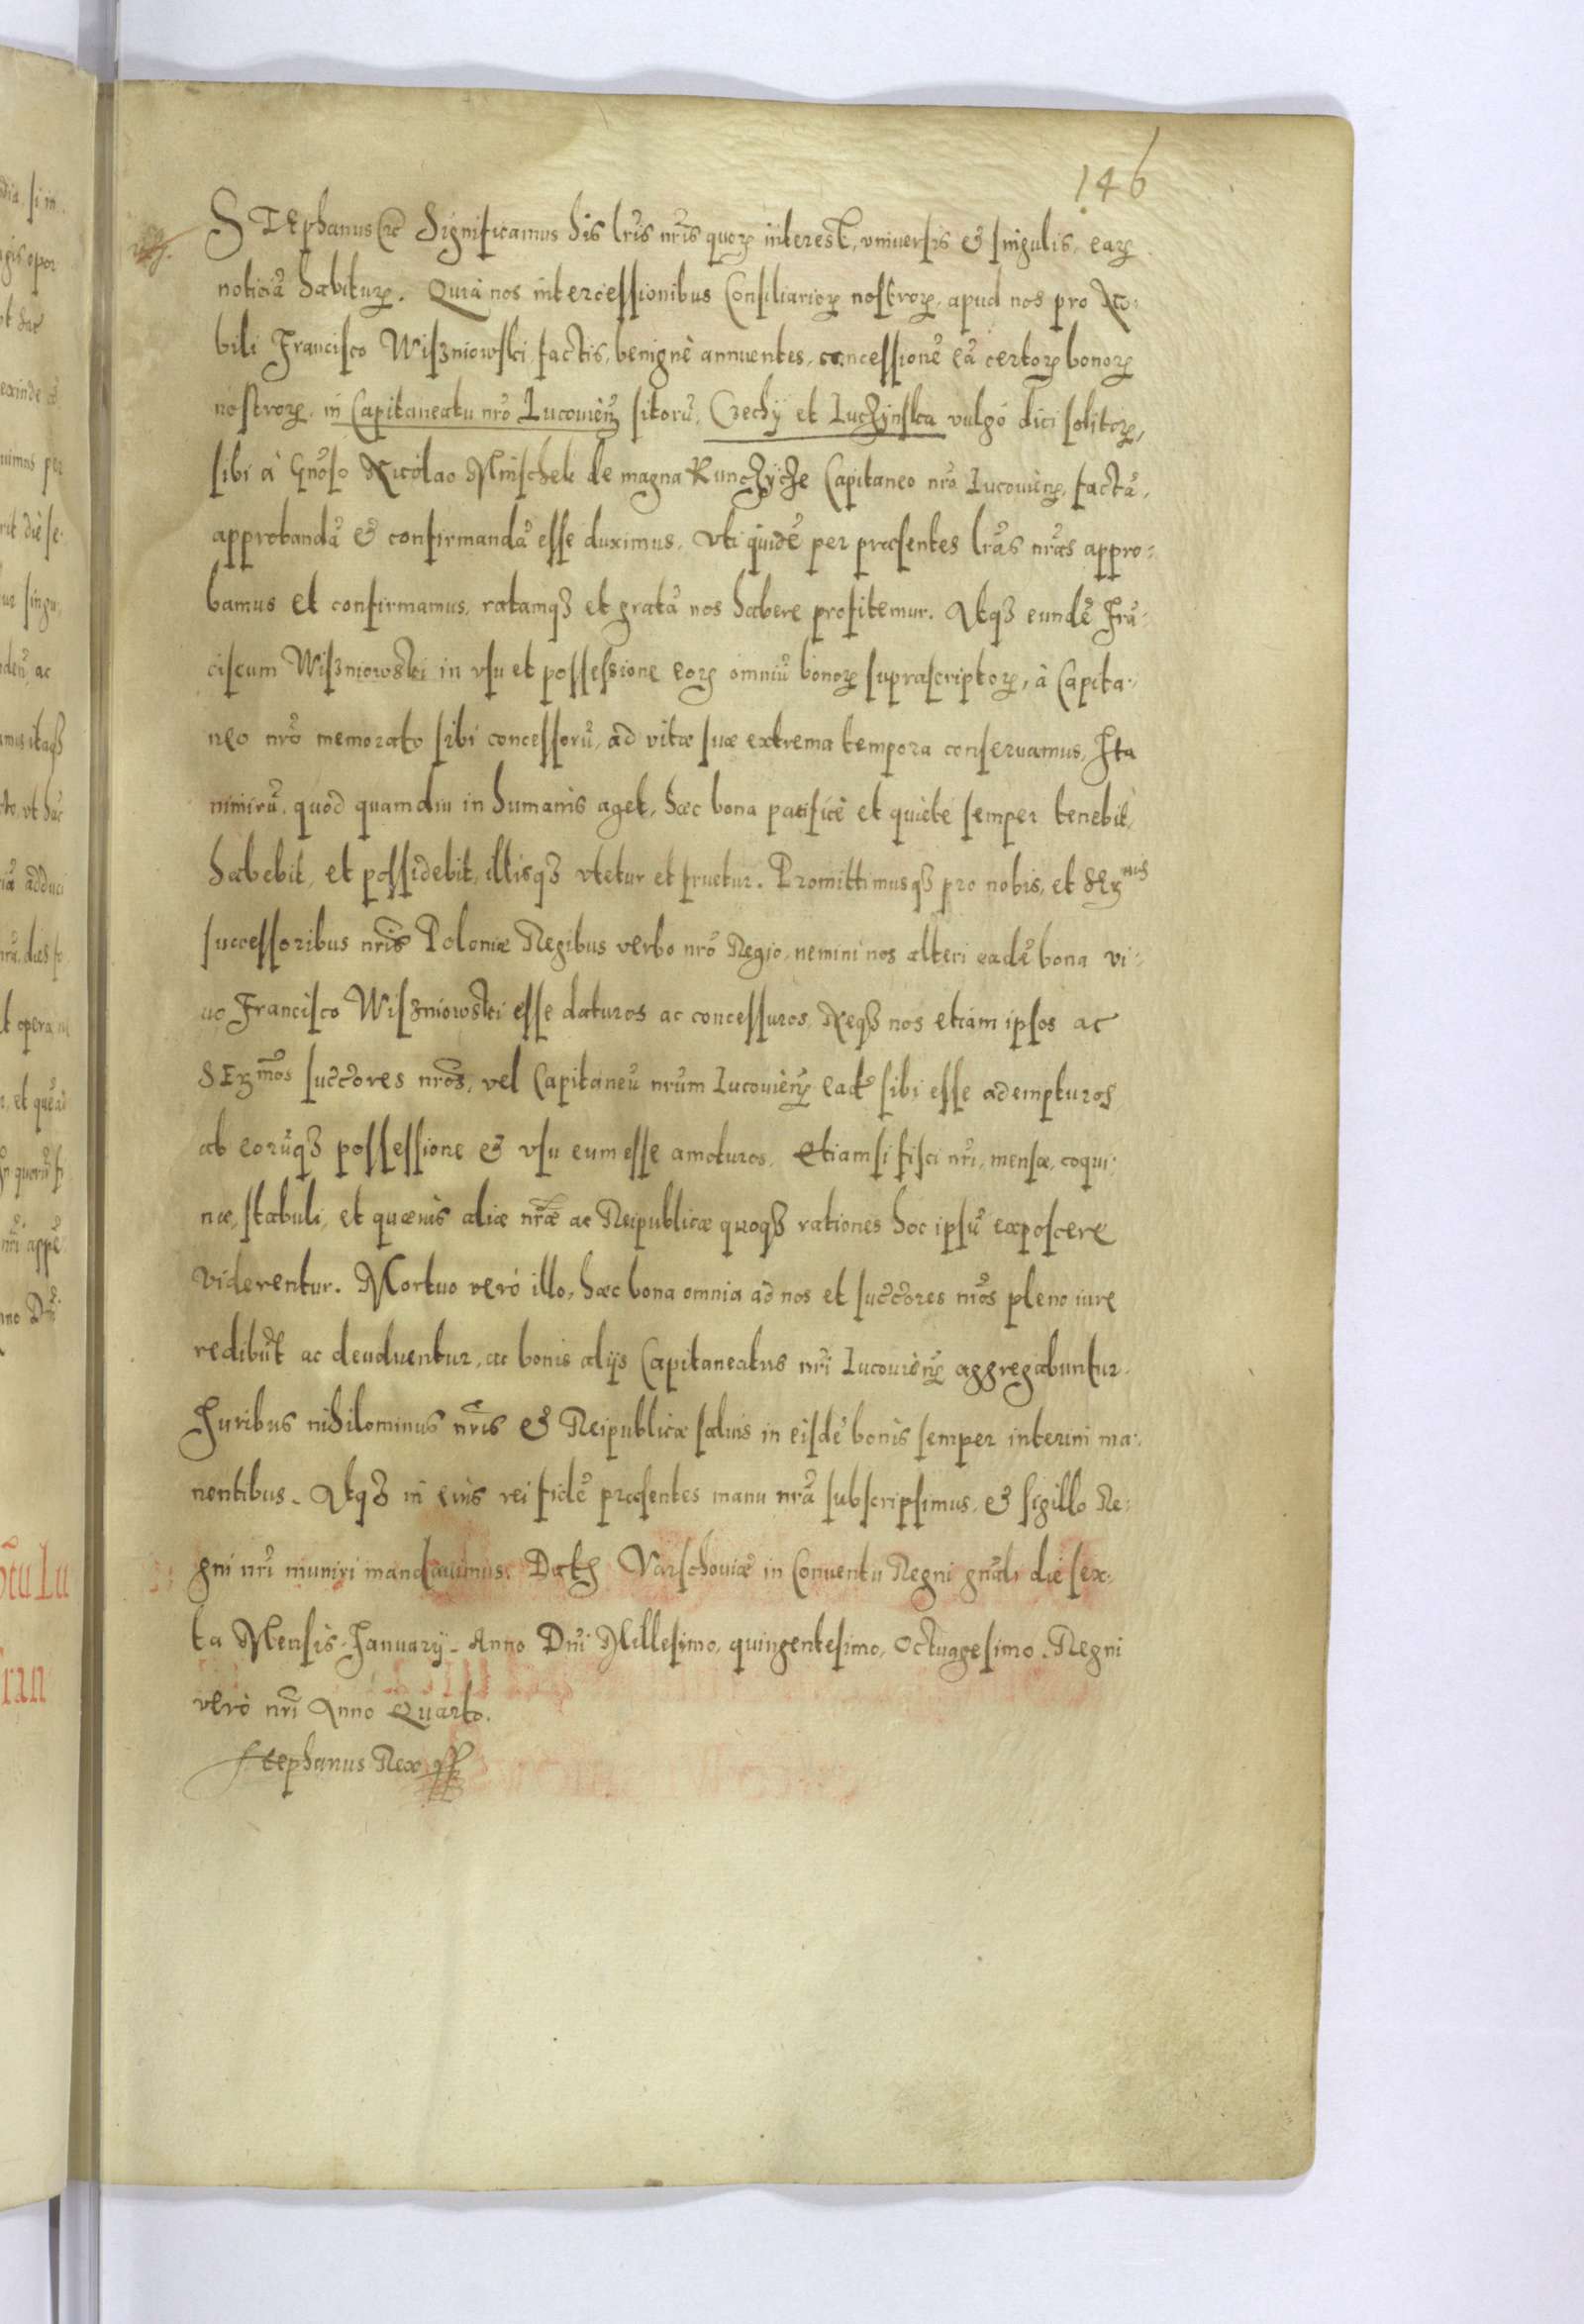 146
STEphanus etc Significamus his lris nris quorꝫ interest, vniuersis et singulis, earꝫ
noticiã habiturꝫ. Quia nos intercessionibus Consiliariorꝫ nostrorꝫ, apud nos pro No:
bili Francisco Wiszniowski factis, benignè annuentes, concessionẽ eã certorꝫ bonorꝫ
nostrorꝫ, in Capitaneatu nrõ Lucouieñ sitorũ, Czechÿ et Luczÿnska vulgó dici solitorꝫ,
sibi à Gnõso Nicolao Mnischek de magna Kunczÿcze Capitaneo nrõ Lucouieñ, factã,
approbandã et confirmandã esse duximus. Vti quidẽ per præsentes lrãs nrãs appro:
bamus et confirmamus, ratamqꝫ et gratã nos habere profitemur. Atqꝫ eundẽ Frã:
ciscum Wiszniowski in vsu et possessione eorꝫ omniũ bonorꝫ suprascriptorꝫ, à Capita:
neo nrõ memorato sibi concessorũ, ad vitæ suæ extrema tempora conseruamus. Ita
nimirũ, quòd quamdiu in humanis aget, hæc bona pacificè et quietè semper tenebit,
habebit, et possidebit, illisqꝫ vtetur et fruetur. Promittimusqꝫ pro nobis, et Serꝫmis
successoribus nris Poloniæ Regibus verbo nrõ Regio, nemini nos alteri eadẽ bona vi:
uo Francisco Wiszniowski esse daturos ac concessuros. Neqꝫ nos etiam ipsos ac
SErꝫmos succores nros, vel Capitaneũ nrum Lucouieñ eadẽ sibi esse adempturos
ab eorũqꝫ possessione et vsu eum esse amoturos, Etiamsi fisci nri, mensæ, coqui:
næ, stabuli, et quæuis aliæ nræ ac Reipublicæ quoqꝫ rationes hoc ipsũ exposcere
viderentur. Mortuo verò illo, hæc bona omnia ad nos et succores nros pleno iure
redibũt ac deuoluentur, ac bonis alijs Capitaneatus nri Lucouieñ aggregabuntur.
Iuribus nihilominus nris et Reipublicæ saluis in eisdẽ bonis semper interim ma:
nentibus. Atqꝫ in eius rei fidẽ præsentes manu nrã subscripsimus, et sigillo Re:
gni nri muniri mandauimus. Datꝫ Varschouiæ in Conuentu Regni gnãli die sex:
ta Mensis Januarÿ. Anno Dni Millesimo, quingentesimo, Octuagesimo. Regni
verò nri Anno Quarto.
Stephanus Rex